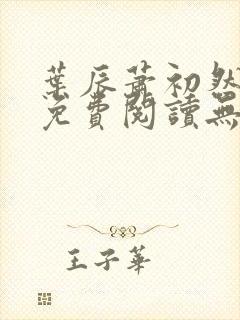 葉辰蕭初然
免費閱讀無
王子華